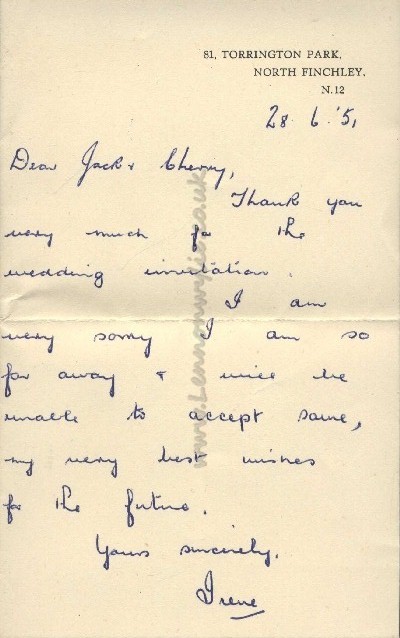 81, TORRINGTON PARK,
NORTH FINCHLEY,
N.12
28. 6. '51
Dear Jack & Cherry,
Thank you
very much for the
wedding invitation.
I am
very sorry I am so
far away & will be
unable to accept same,
my very best wishes
for the future.
Yours sincerely,
Irene
www.Lennonwylie.co.uk